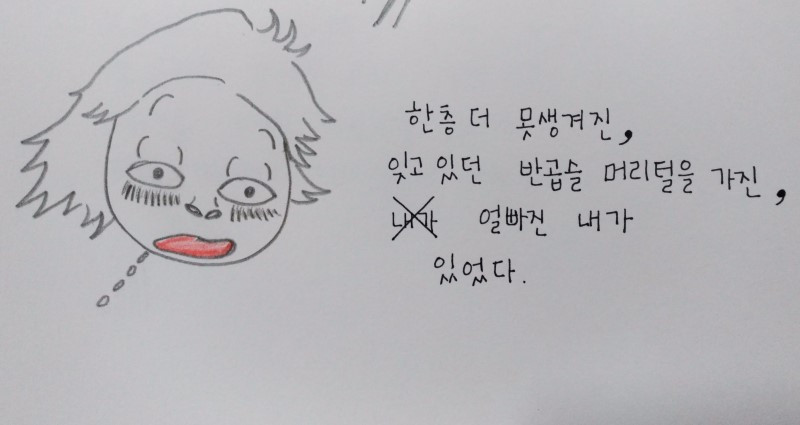 한층 더 못생겨진,
잊고 있던 반곱슬 머리털을 가진,
내가 얼빠진 내가
있었다.